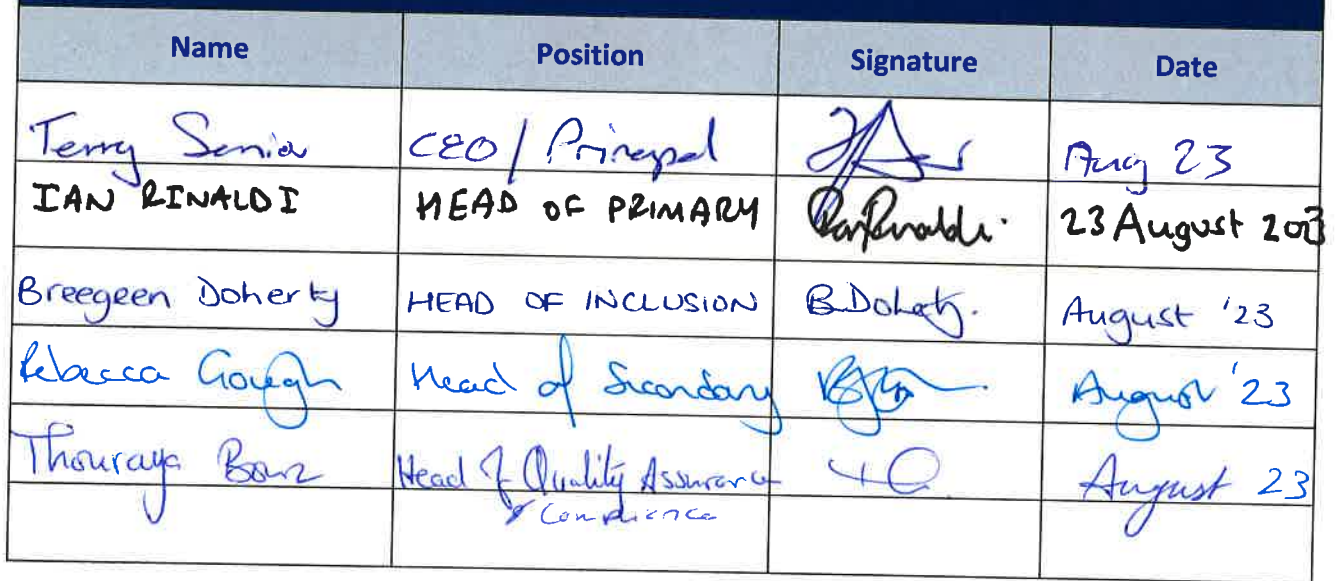 Name Position Signature Date
Terry Senior CEO / Principal Aug 23
IAN RINALDI HEAD OF PRIMARY Ian Rinaldi. 23 August 2023
Breegeen Doherty HEAD OF INCLUSION B.Doherty. August '23
Rebecca Gough Head of Secondary August '23
Thouraya Head of Quality Assurance August 23
& Compliance